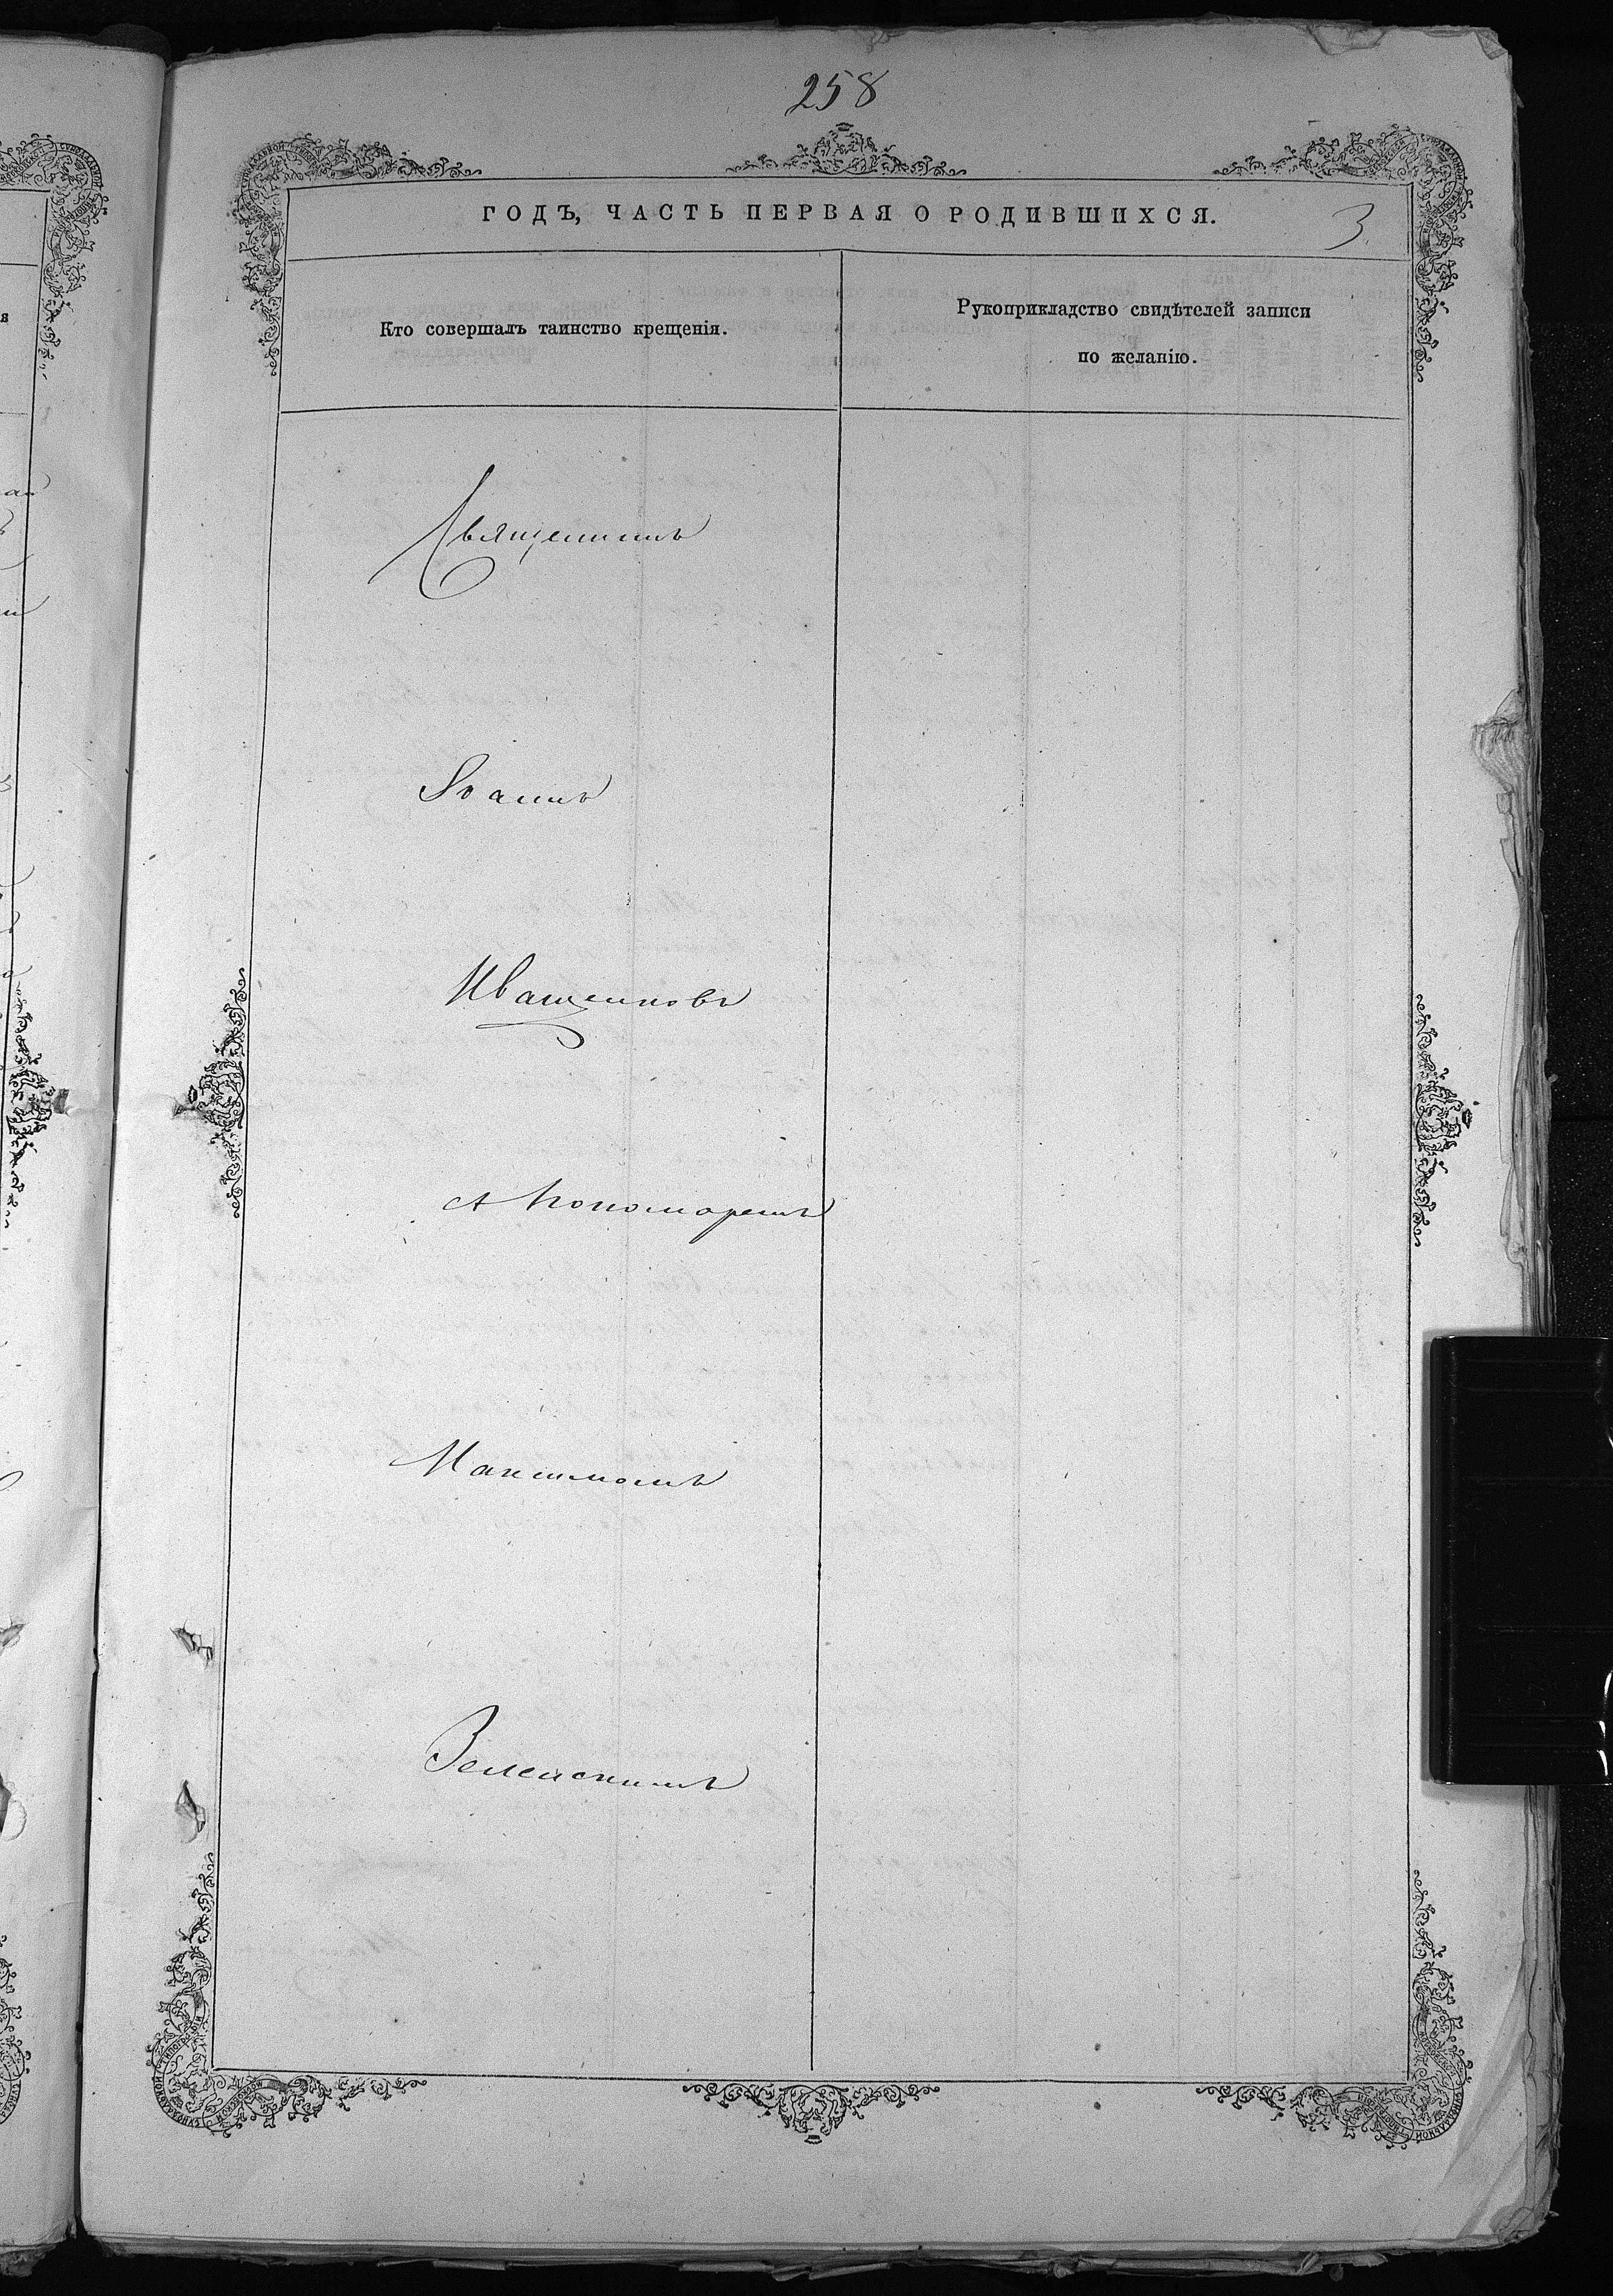 258
ГОДЪ, ЧАСТЬ ПЕРВАЯ О РОДИВШИХСЯ.
3.
Кто совершалъ таинство крещенія.
Рукоприкладство свидѣтелей записи
по желанію.
Священникъ
Іоаннъ
Иващенковъ
съ Пономаремъ
Максимомъ
Зеленскимъ